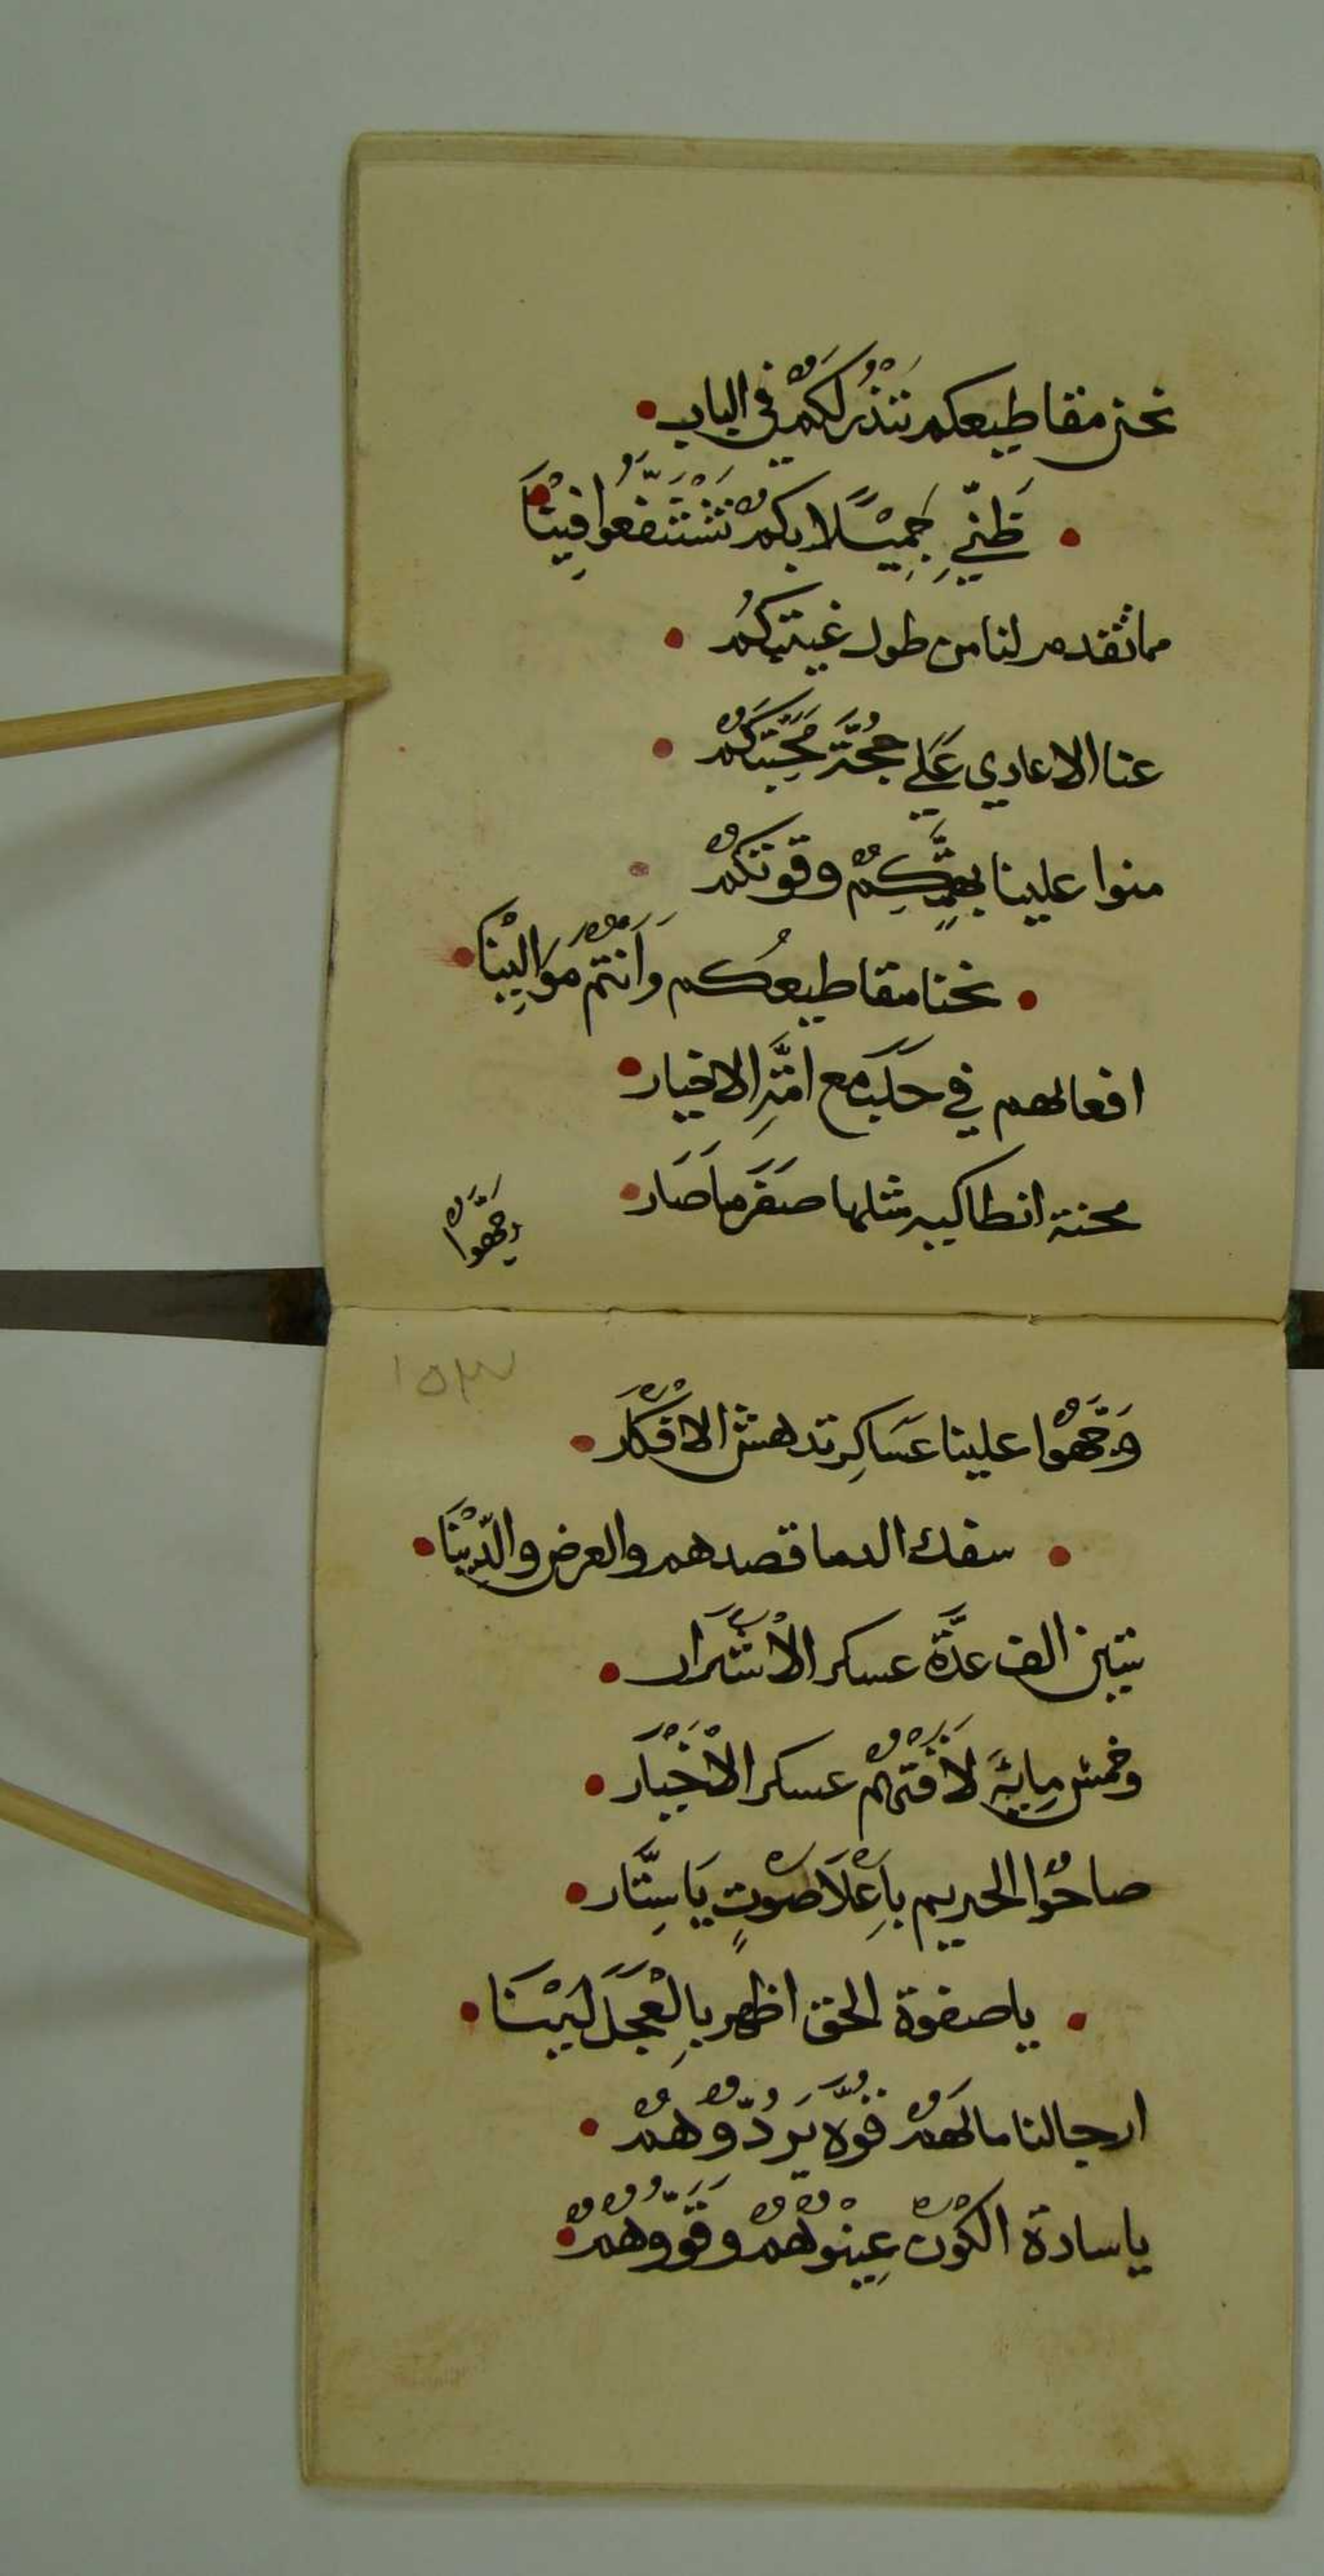 نحن مقاطيعكم نتنذر لكم في الباب
ظني جميلا بكم تشتفعوا فينا
مما تقدم لنا من طول غيبتكم
عنا الاعادي علي حجة محبتكم
منوا علينا بهمتكم وقوتكم
نحنا مقاطيعكم وانتم موالينا
افعالهم في حلب مع امة الاخيار
محنة انطاكيه مثلها صفر ما صار
وجهوا
١٥٣
وجهوا علينا عساكر تدهش الافكار
سفك الدما قصدهم والعرض والدينا
تنين الف عدة عسكر الاشرار
وخمس ماية لافتهم عسكر الاخيار
صاحوا الحريم باعلا صوت يا ستار
يا صفوة الحق اظهر بالعجل لينا
ارجالنا ما لهم قوه يردوهم
يا سادة الكون عينوهم وقووهم